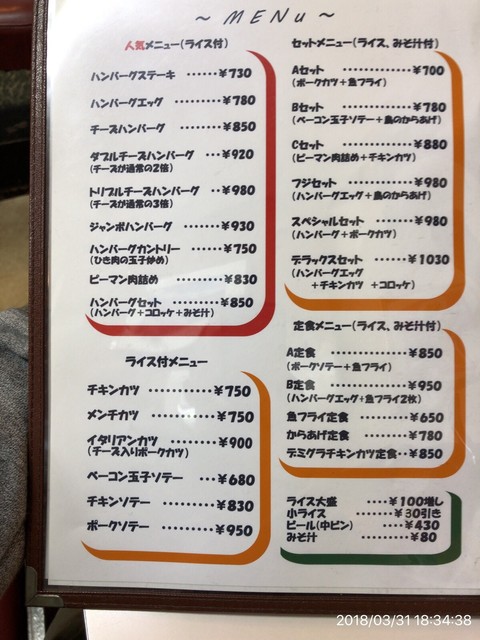 ～ MENu ～
人気メニュー(ライス付)
ハンバーグステーキ ……¥730
ハンバーグエッグ ………¥780
チーズハンバーグ ………¥850
ダブルチーズハンバーグ …¥920
(チーズが通常の2倍)
トリプルチーズハンバーグ …¥980
(チーズが通常の3倍)
ジャンボハンバーグ ……¥930
ハンバーグカントリー ……¥750
(ひき肉の玉子炒め)
ピーマン肉詰め …………¥830
ハンバーグセット ………¥850
(ハンバーグ+コロッケ+みそ汁)
ライス付メニュー
チキンカツ …………¥750
メンチカツ …………¥750
イタリアンカツ ………¥900
(チーズ入りポークカツ)
ベーコン玉子ソテー …¥680
チキンソテー ………¥830
ポークソテー …………¥950
セットメニュー(ライス、みそ汁付)
Aセット ………………¥700
(ポークカツ+魚フライ)
Bセット ………………¥780
(ベーコン玉子ソテー+鳥のからあげ)
Cセット ………………¥880
(ピーマン肉詰め+チキンカツ)
フジセット ……………¥980
(ハンバーグエッグ+鳥のからあげ)
スペシャルセット ………¥980
(ハンバーグ+ポークカツ)
デラックスセット ………¥1030
(ハンバーグエッグ
+チキンカツ +コロッケ)
定食メニュー(ライス、みそ汁付)
A定食 ………………¥850
(ポークソテー+魚フライ)
B定食 ………………¥950
(ハンバーグエッグ+魚フライ2枚)
魚フライ定食 …………¥650
からあげ定食 …………¥780
デミグラチキンカツ定食‥¥850
ライス大盛 ……¥100増し
小ライス ………¥30引き
ビール(中ビン) ……¥430
みそ汁 ……………¥80
2018/03/31 18:34:38